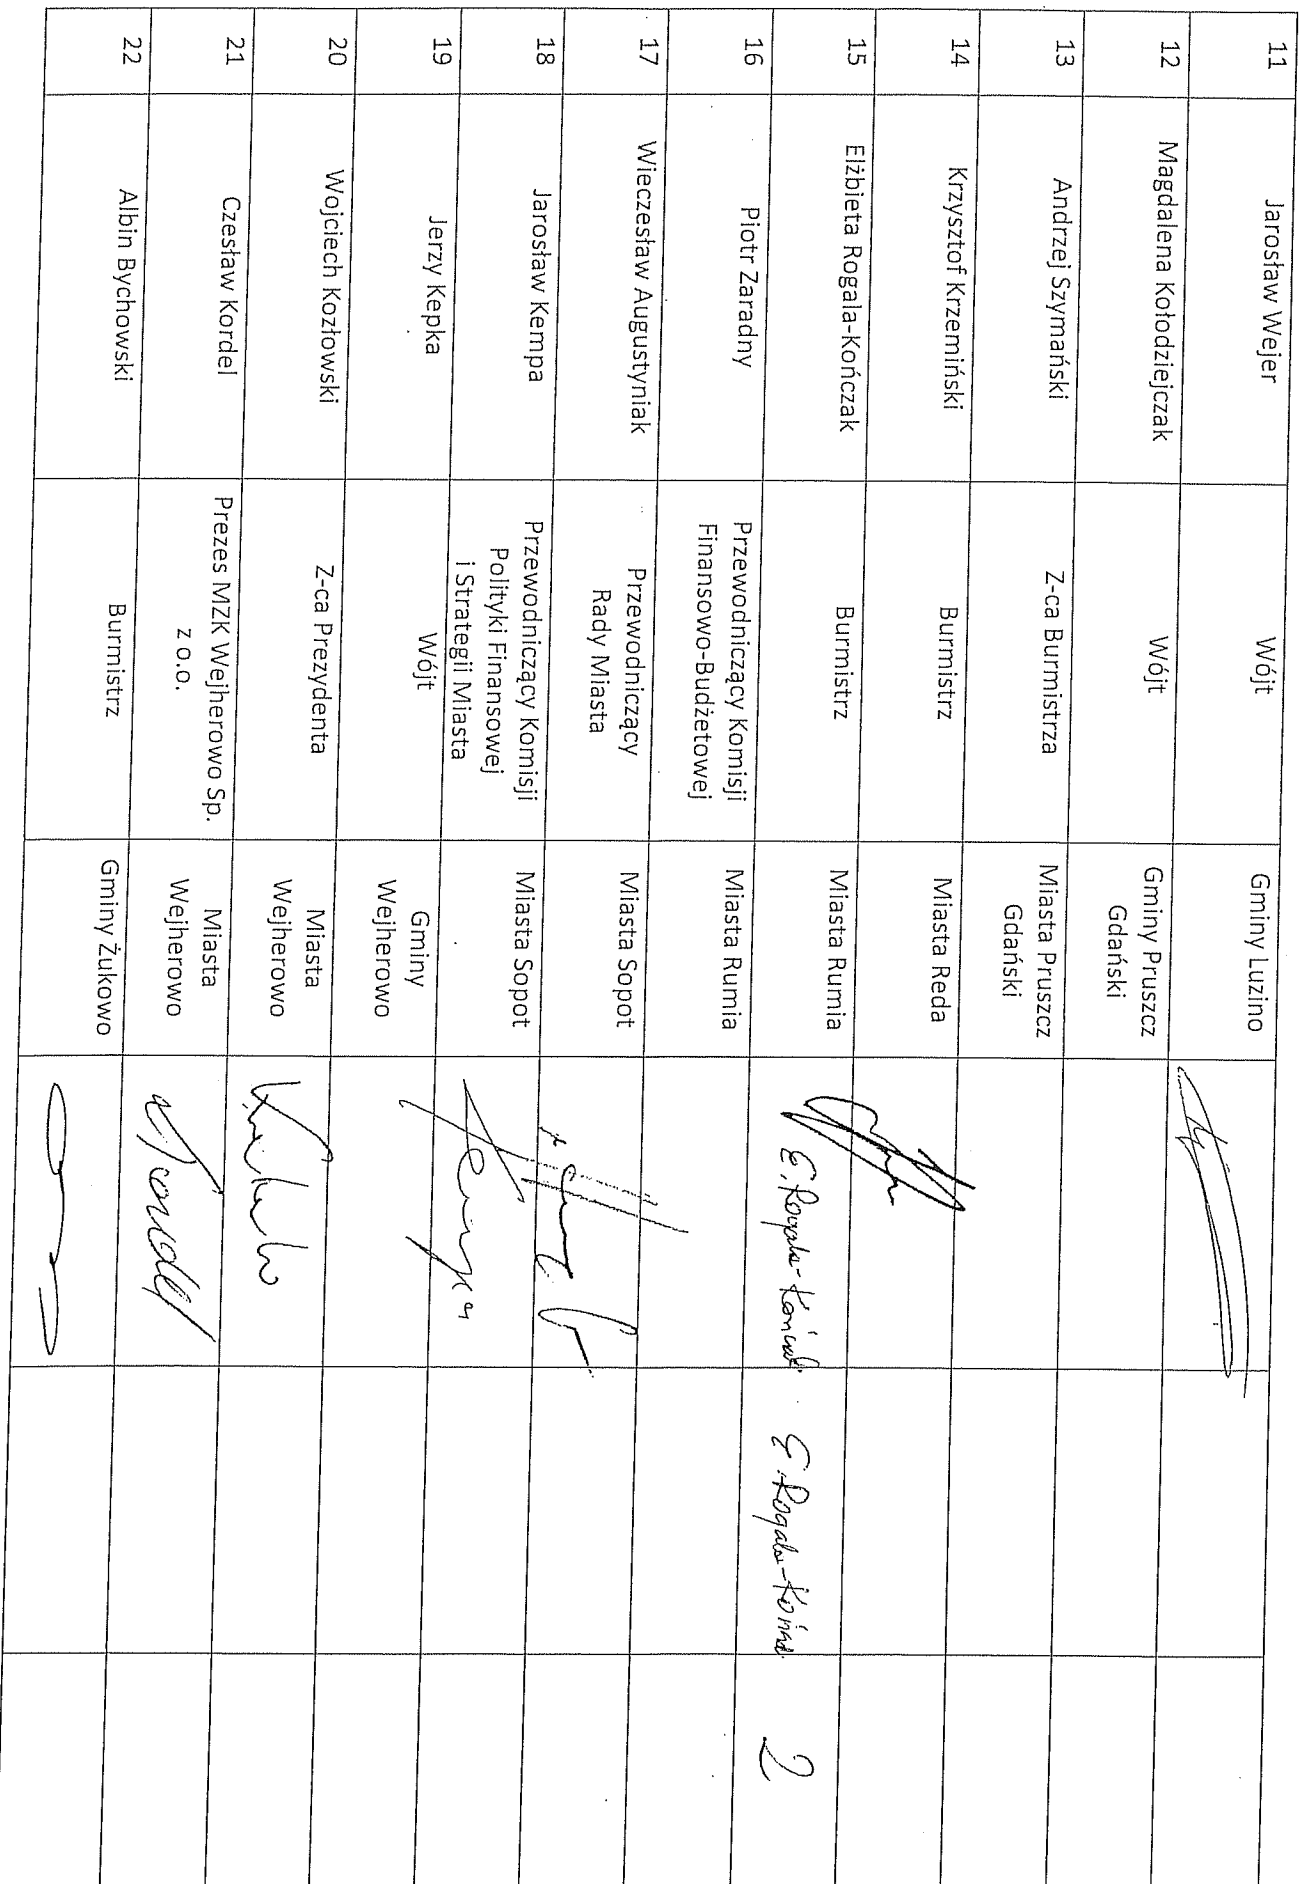 11
Jarosław Wejer
Wójt
Gminy Luzino
12
Magdalena Kołodziejczak
Wójt
Gminy Pruszcz
Gdański
13
Andrzej Szymański
Z-ca Burmistrza
Miasta Pruszcz
Gdański
14
Krzysztof Krzemiński
Burmistrz
Miasta Reda
15
Elżbieta Rogala-Kończak
Burmistrz
Miasta Rumia
E. Rogala-Kończak
E. Rogala-Kończak
2
16
Piotr Zaradny
Przewodniczący Komisji
Finansowo-Budżetowej
Miasta Rumia
17
Wieczesław Augustyniak
Przewodniczący
Rady Miasta
Miasta Sopot
18
Jarosław Kempa
Przewodniczący Komisji
Polityki Finansowej
i Strategii Miasta
Miasta Sopot
19
Jerzy Kepka
Wójt
Gminy
Wejherowo
20
Wojciech Kozłowski
Z-ca Prezydenta
Miasta
Wejherowo
21
Czesław Kordel
Prezes MZK Wejherowo Sp.
z o.o.
Miasta
Wejherowo
Kordel
22
Albin Bychowski
Burmistrz
Gminy Żukowo